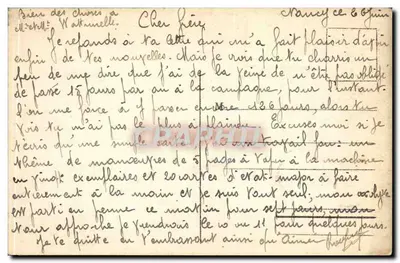 Bien des choses à
Mr et Mme
Nancy le 26 juin
Cher frère
Je reponds à ta lettre qui m'a fait plaisir d'avoir
enfin de tes nouvelles. Mais je vois que tu charris un
peu de me dire, que j'ai de la veine de n'être pas obligé
de passé 15 jours par an à la campagne, pour l'instant
on me force à y passer 136 jours, alors tu
vois tu m'as pas le plus à plaindre. Excuses moi si je
t'écris qu'une carte travail fou: un
thême de manœuvres de 5 pages à taper à la machine
en vingt exemplaires et 20 cartes d'etat-major à faire
entierement à la main et je suis tout seul; mon
est parti en perme ce matin pour sept jours, mon
tour approche je viendrais le 10 ou 11 pour quelques jours.
Je te quitte en t'embrassant ainsi que Aimée
CPARAMA